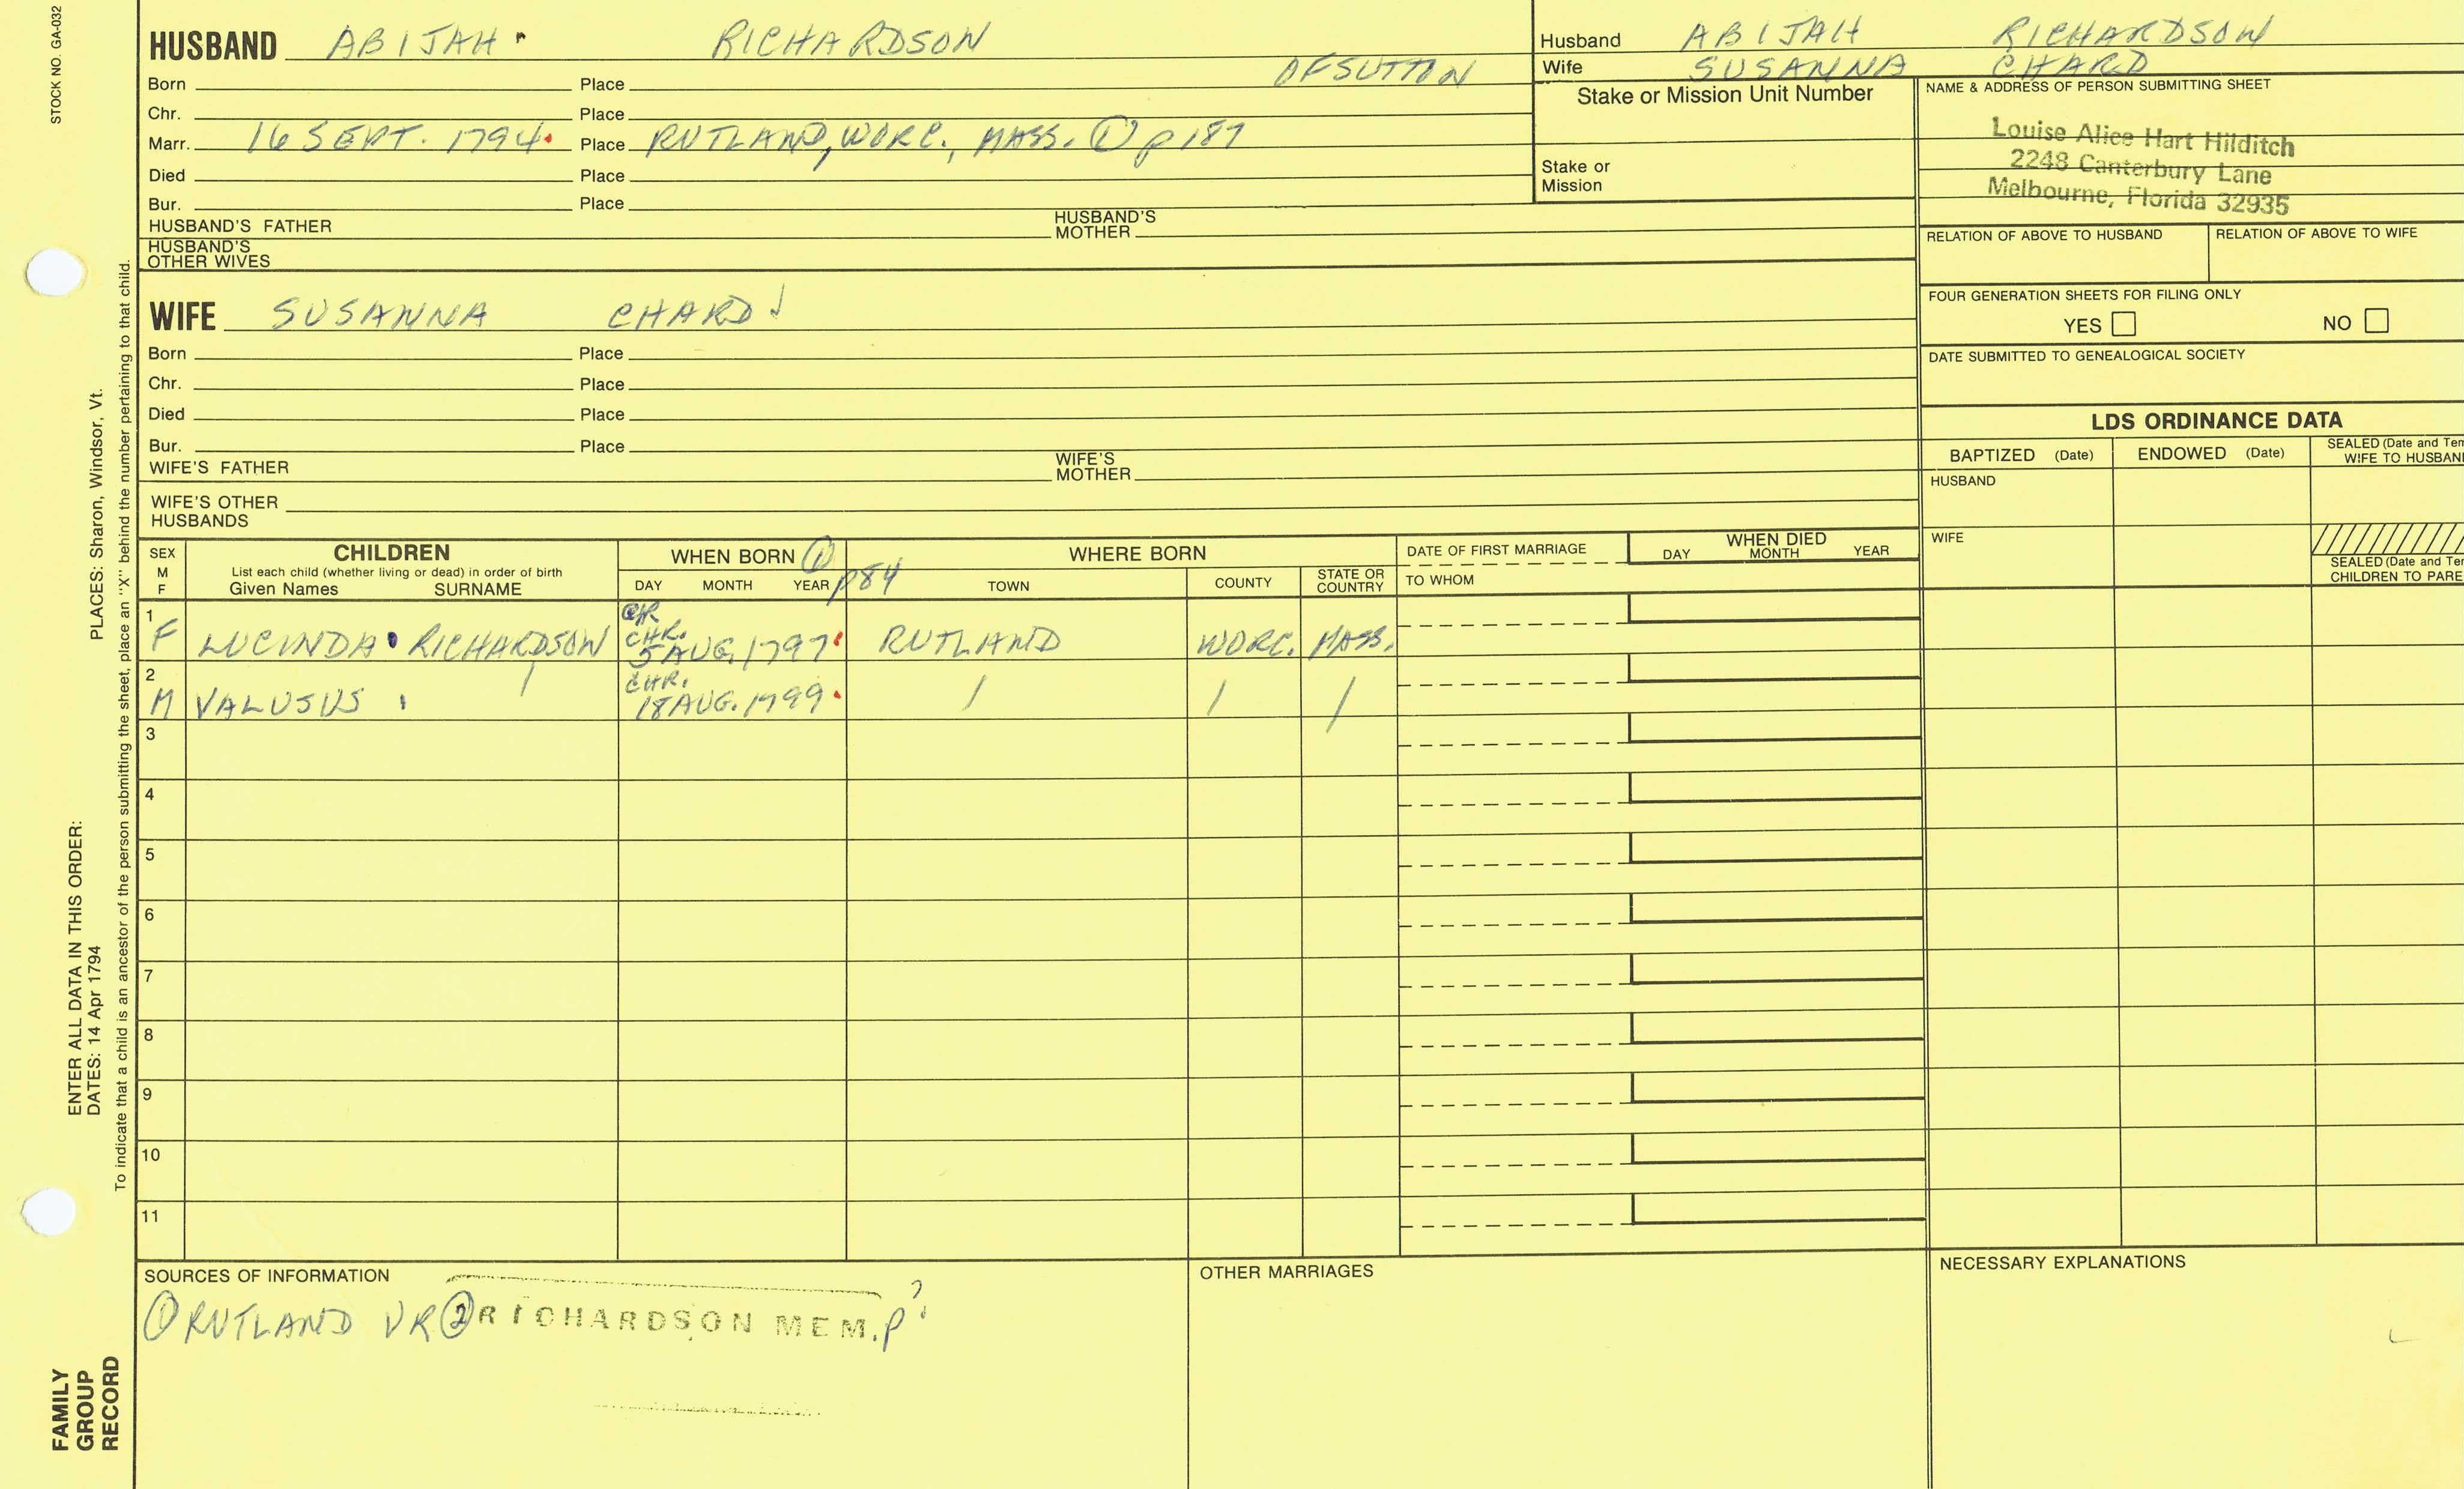 STOCK NO. GA-032
HUSBAND ABIJAH RICHARDSON
OF SUTTON
Born Place
Chr. Place
Marr. 16 SEPT. 1794 Place RUTLAND, WORC., MASS. ① p 187
Died Place
Bur. Place
HUSBAND'S FATHER HUSBAND'S MOTHER
HUSBAND'S OTHER WIVES
Husband ABIJAH RICHARDSON
Wife SUSANNA CHARD
Stake or Mission Unit Number
Stake or Mission
NAME & ADDRESS OF PERSON SUBMITTING SHEET
Louise Alice Hart Hilditch
2248 Canterbury Lane
Melbourne, Florida 32935
RELATION OF ABOVE TO HUSBAND RELATION OF ABOVE TO WIFE
FOUR GENERATION SHEETS FOR FILING ONLY
YES NO
DATE SUBMITTED TO GENEALOGICAL SOCIETY
WIFE SUSANNA CHARD
Born Place
Chr. Place
Died Place
Bur. Place
WIFE'S FATHER WIFE'S MOTHER
WIFE'S OTHER HUSBANDS
LDS ORDINANCE DATA
BAPTIZED (Date) ENDOWED (Date) SEALED (Date and Tem
WIFE TO HUSBAN
HUSBAND
WIFE
SEALED (Date and Tem
CHILDREN TO PARE
SEX M F
CHILDREN
List each child (whether living or dead) in order of birth
Given Names SURNAME
WHEN BORN ① p 84
DAY MONTH YEAR
WHERE BORN
TOWN COUNTY STATE OR COUNTRY
DATE OF FIRST MARRIAGE
TO WHOM
WHEN DIED
DAY MONTH YEAR
1 F LUCINDA RICHARDSON CHR. 5 AUG. 1797 RUTLAND WORC. MASS.
2 M VALUSUS / CHR. 18 AUG. 1799 / / /
3
4
5
6
7
8
9
10
11
SOURCES OF INFORMATION
① RUTLAND VR ② RICHARDSON MEM. p ?
OTHER MARRIAGES
NECESSARY EXPLANATIONS
FAMILY
GROUP
RECORD
ENTER ALL DATA IN THIS ORDER:
DATES: 14 Apr 1794 PLACES: Sharon, Windsor, Vt.
To indicate that a child is an ancestor of the person submitting the sheet, place an "X" behind the number pertaining to that child.